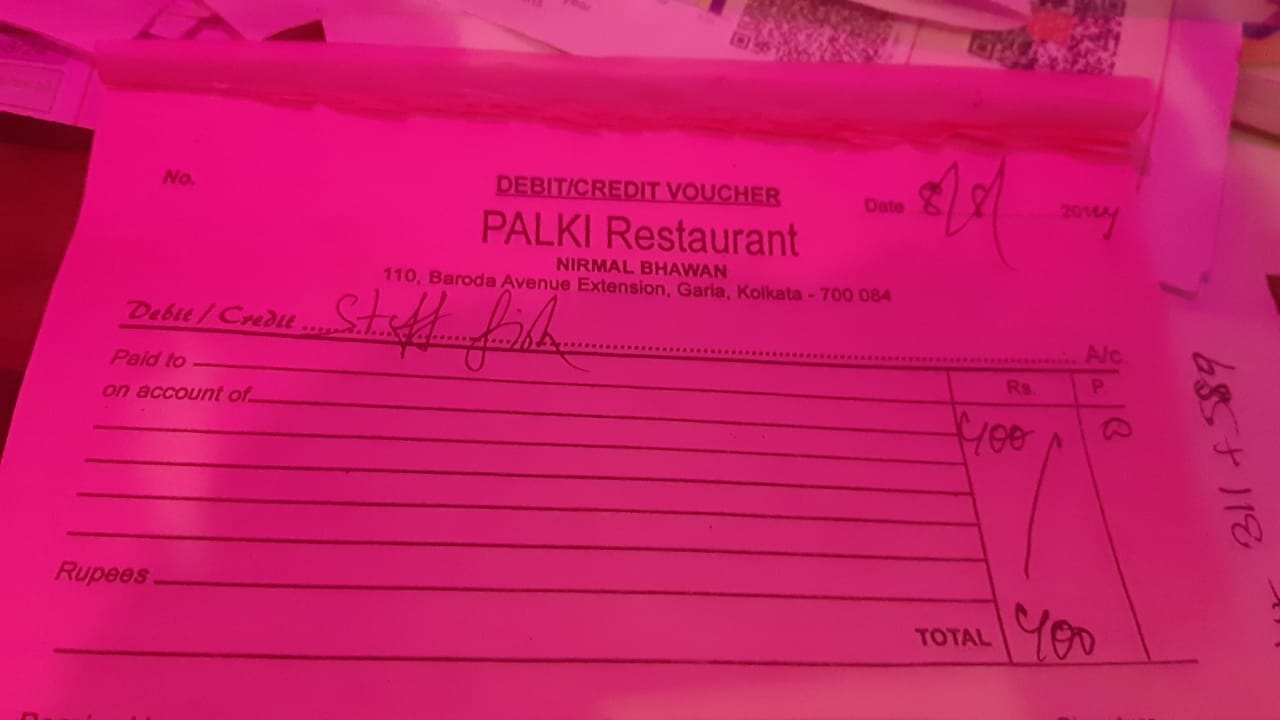 No.
DEBIT/CREDIT VOUCHER
Date 8/8/ 201
PALKI Restaurant
NIRMAL BHAWAN
110, Baroda Avenue Extension, Garia, Kolkata - 700 084
Debit / Credit Staff fish A/c.
Paid to
Rs. P.
on account of
400
Rupees
TOTAL 400
311 + 589